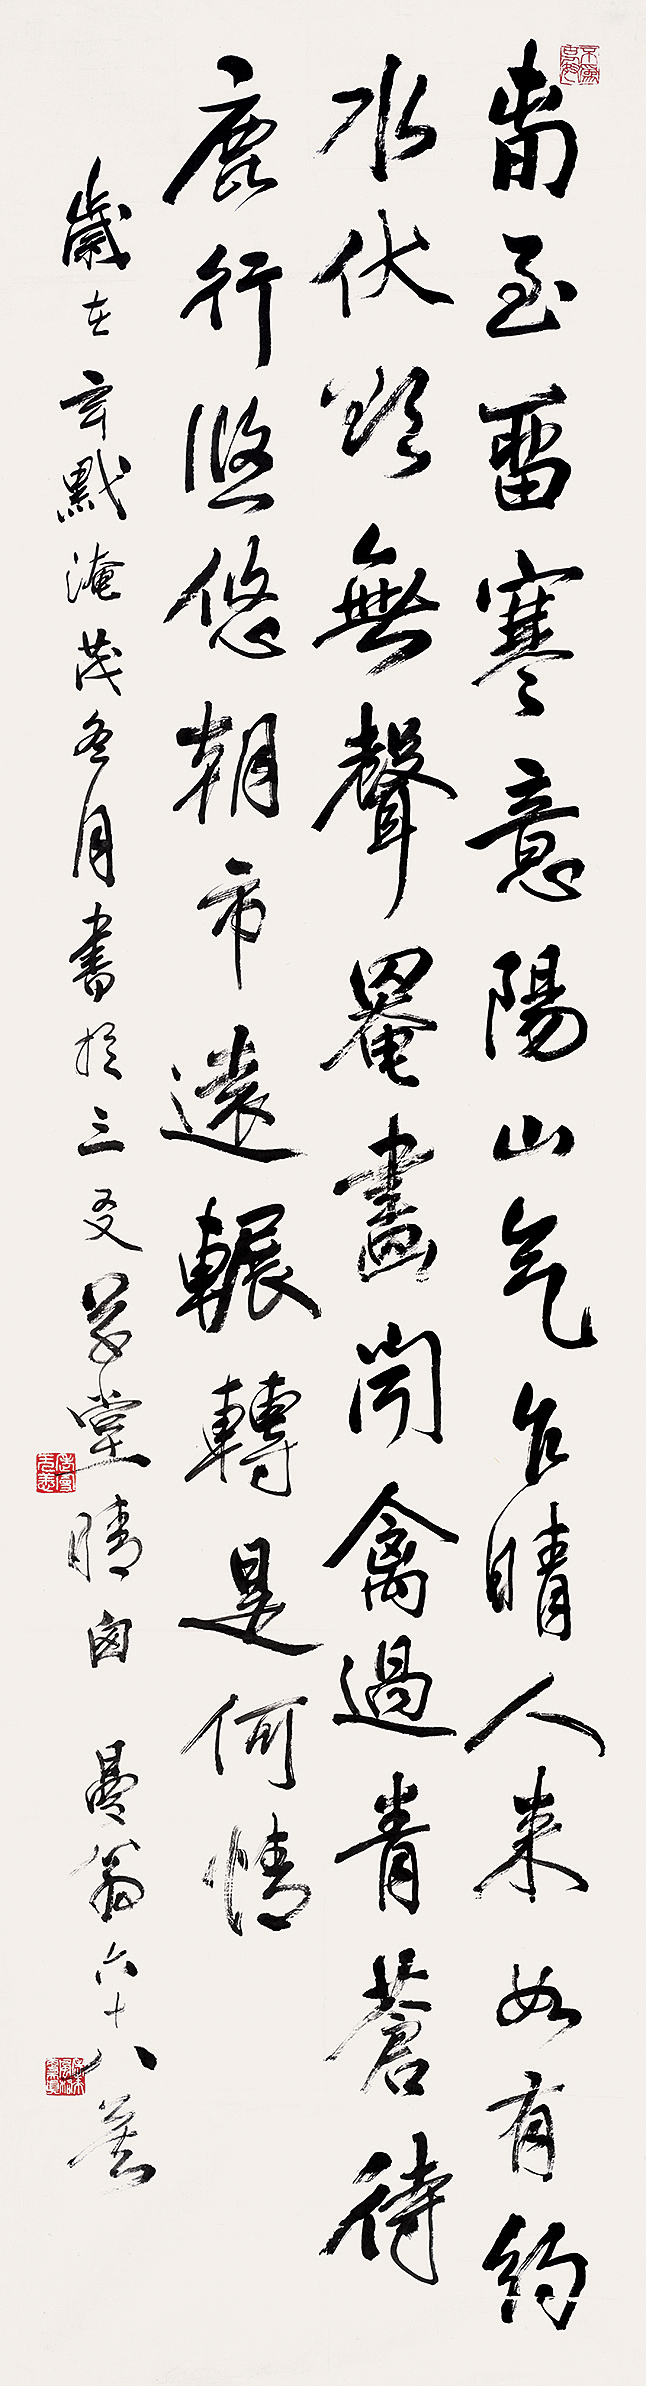 春至留寒意陽山气乍晴人来如有約
水伏無聲罨畫聞禽過青蒼待
鹿行悠悠朝市遠輾轉是何情
歲在玄黓淹茂冬月書於三爻草堂晴囱 曼翁六十八